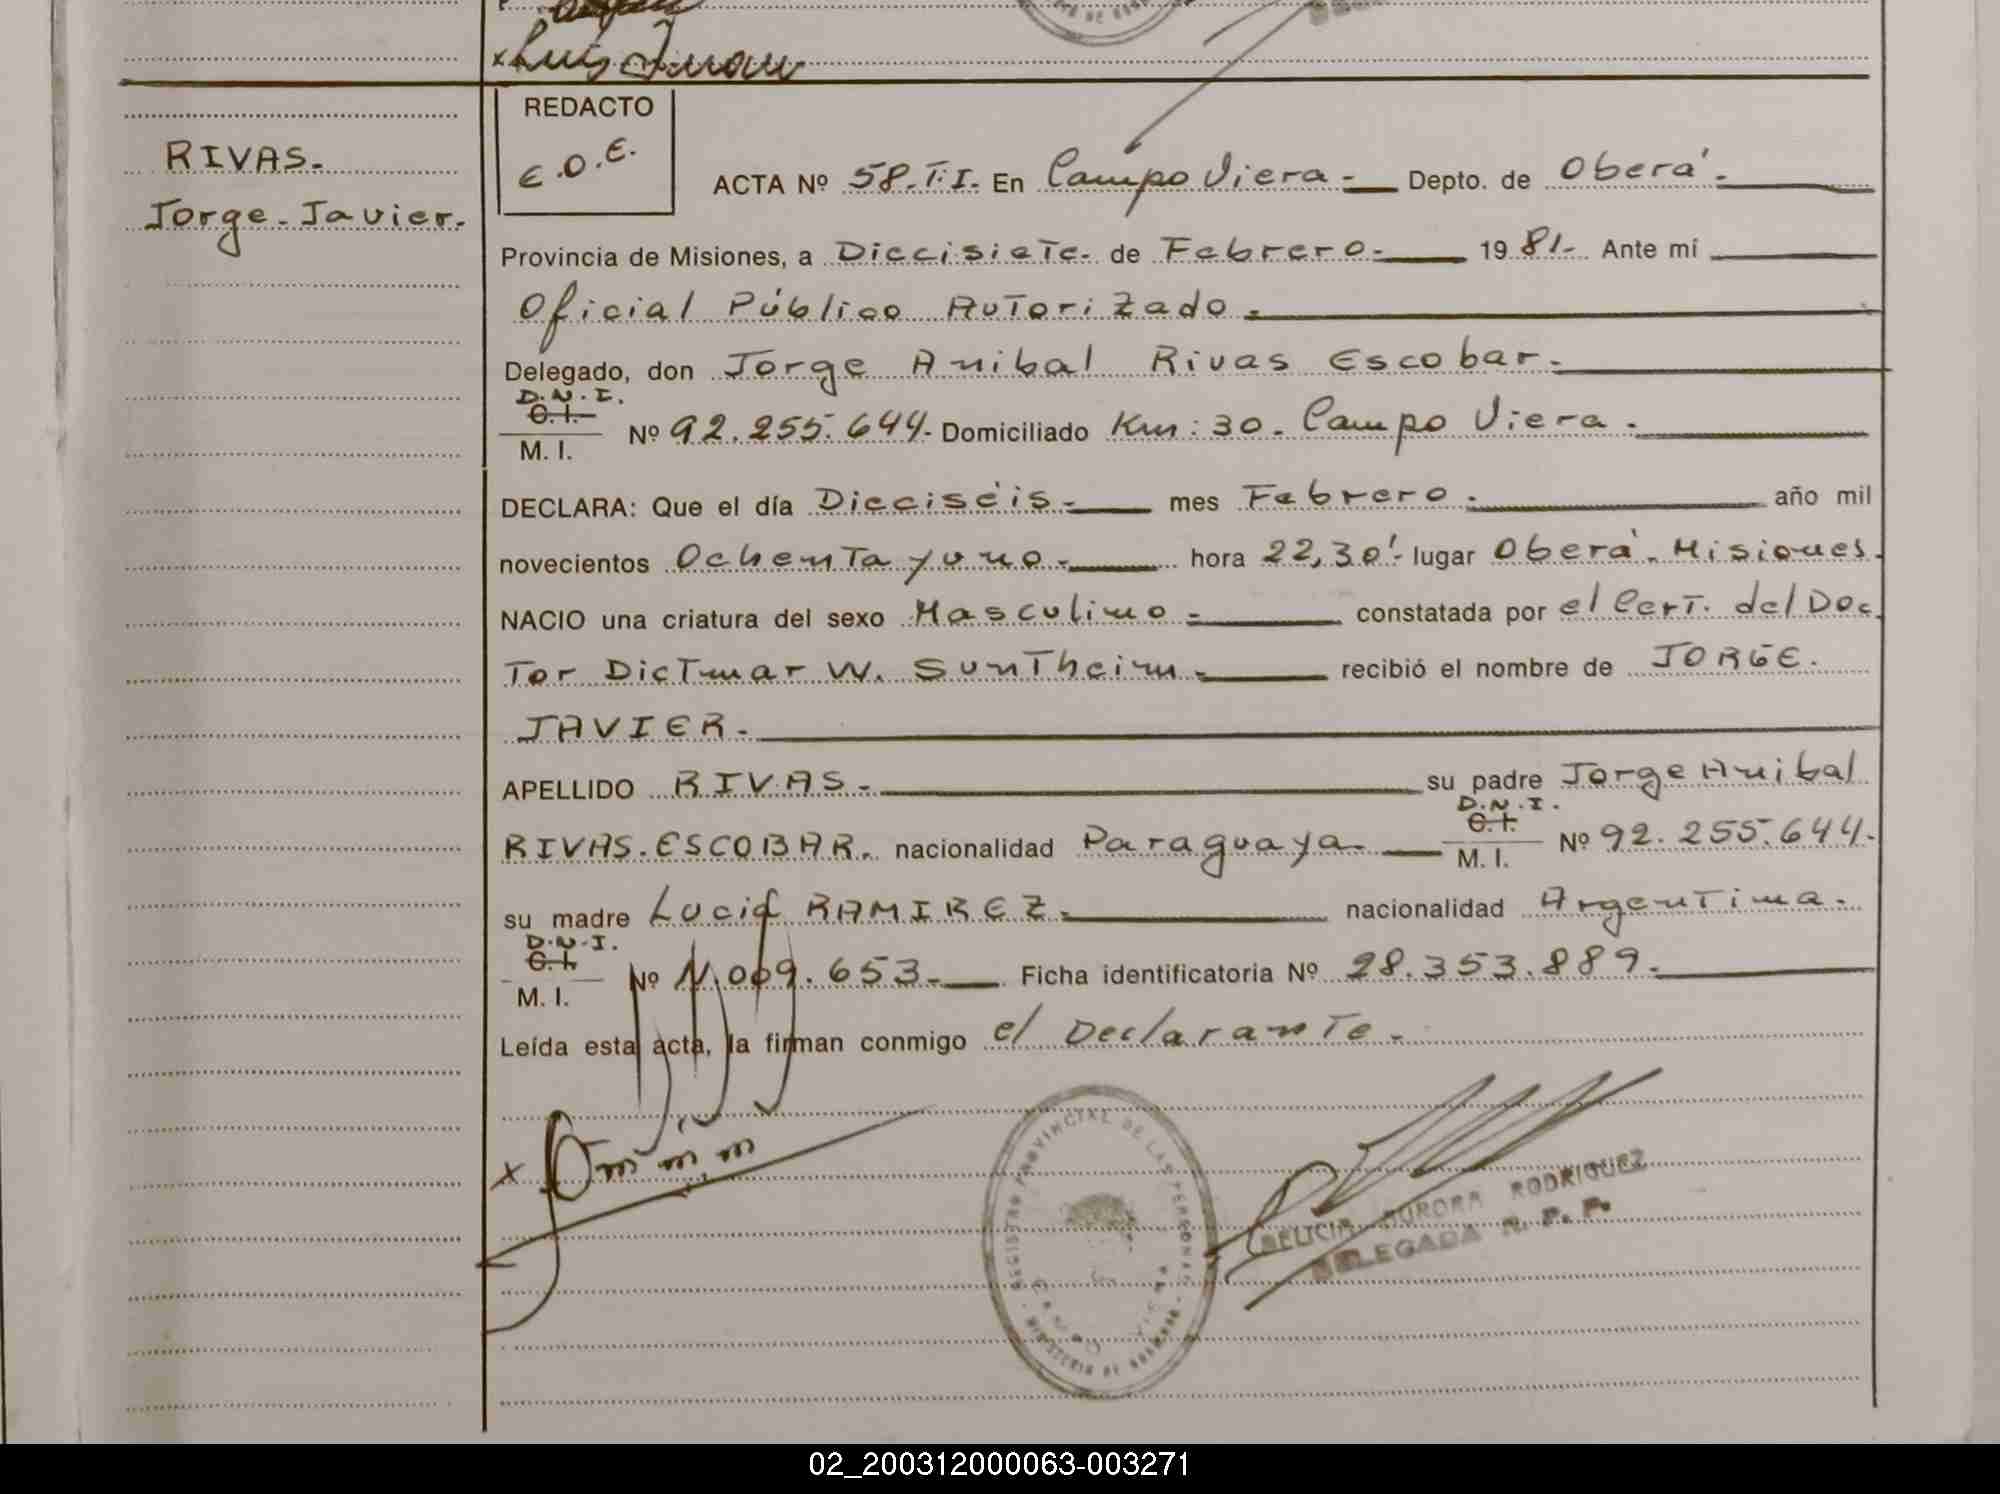 x Luis Juan
RIVAS.
Jorge. Javier.
REDACTO
E.O.E.
ACTA Nº 58.T.I. En Campo Viera - Depto. de Oberá.
Provincia de Misiones, a Diecisiete. de Febrero. 1981. Ante mí
Oficial Público Autorizado.
Delegado, don Jorge Anibal Rivas Escobar.
D.N.I.
C.I.
M. I. Nº 92.255.644. Domiciliado Km: 30. Campo Viera.
DECLARA: Que el día Dieciséis. mes Febrero. año mil
novecientos Ochenta y uno. hora 22,30'. lugar Oberá. Misiones.
NACIO una criatura del sexo Masculino - constatada por el Cert. del Doc
Tor Dietmar W. Suntheim. recibió el nombre de JORGE.
JAVIER.
APELLIDO RIVAS. su padre Jorge Anibal
D.N.I.
C.I.
RIVAS. ESCOBAR. nacionalidad Paraguaya. M. I. Nº 92.255.644.
su madre Lucia RAMIREZ. nacionalidad Argentina.
D.N.I.
C.I.
M. I. Nº 009.653. Ficha identificatoria Nº 28.353.889.
Leída esta acta, la firman conmigo el Declarante.
x
REGISTRO PROVINCIAL DE LAS PERSONAS
AURORA RODRIGUEZ
DELEGADA R. P. P.
02_200312000063-003271